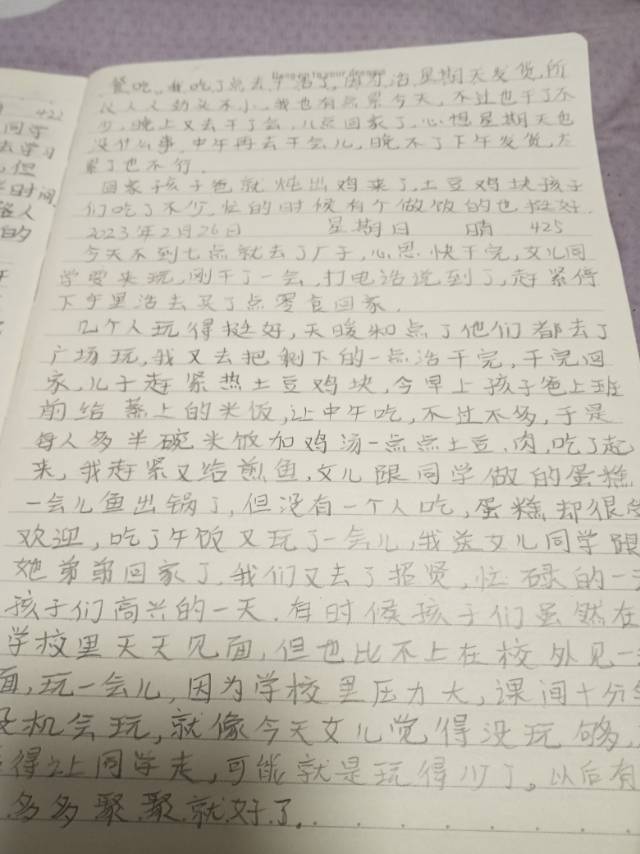 餐吃,我吃了点去干活了,因为活星期天发货,所
以人人劲头不小,我也有点累今天,不过也干了不
少,晚上又去干了会,八点回家了,心想星期天也
没什么事,中午再去干会儿,晚不了下午发货,太
累了也不行.
回家孩子爸就炖出鸡来了,土豆鸡块孩子
们吃了不少,忙的时候有个做饭的也挺好.
2023年2月26日 星期日 晴 425
今天不到七点就去了厂子,心思快干完,女儿同
学要来玩,刚干了一会,打电话说到了,赶紧得
下手里活去买了点零食回家.
几个人玩得挺好,天暖和点了他们都去了
广场玩,我又去把剩下的一点活干完,干完回
家,儿子赶紧热土豆鸡块,今早上孩子爸上班
前给蒸上的米饭,让中午吃,不过不多,于是
每人多半碗米饭加鸡汤一点点土豆,肉,吃了起
来,我赶紧又给煎鱼,女儿跟同学做的蛋糕
一会儿鱼出锅了,但没有一个人吃,蛋糕却很受
欢迎,吃了午饭又玩了一会儿,我送女儿同学跟
她弟弟回家了,我们又去了招贤,忙碌的一
孩子们高兴的一天.有时候孩子们虽然在
学校里天天见面,但也比不上在校外见一
面,玩一会儿,因为学校里压力大,课间十分
没机会玩,就像今天女儿觉得没玩够,
得让同学走,可能就是玩得少了。以后有
多多聚聚就好了.
422
同学
去学习
但
时间
人
的